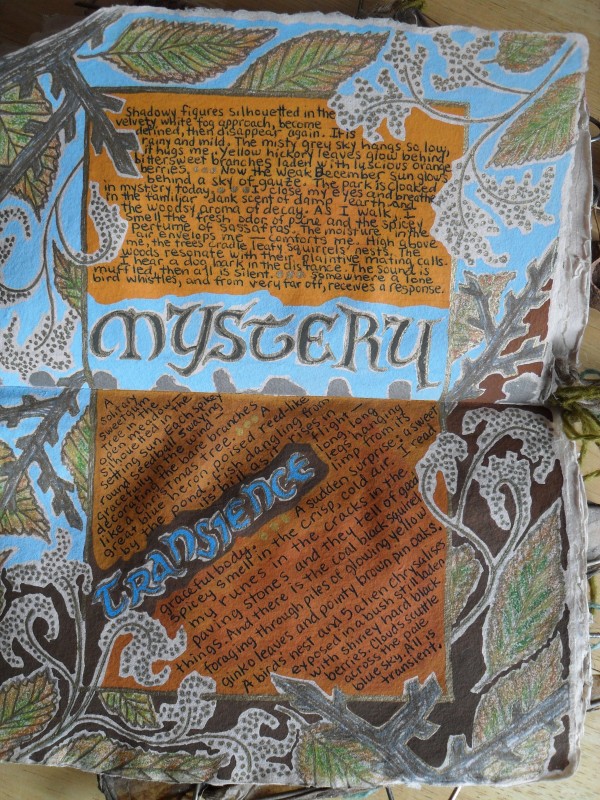 Shadowy figures silhouetted in the
velvety white fog approach, become
defined, then disappear again. It is
rainy and mild. The misty grey sky hangs so low,
it hugs me. Yellow hickory leaves glow behind
bittersweet branches laden with luscious orange
berries. Now the weak December sun glows
behind a sky of gauze. The park is cloaked
in mystery today. I close my eyes and breathe
in the familiar dank scent of damp earth and
the woodsy aroma of decay. As I walk, I
smell the fresh odor of pine and the spicey
perfume of sassafras. The moisture in the
air envelops me - comforts me. High above
me, the trees cradle leafy squirrels' nests. The
woods resonate with their plaintive mating calls.
I hear a dog bark in the distance. The sound is
muffled, then all is silent. Somewhere a lone
bird whistles, and from very far off, receives a response.
MYSTERY
solitary
sweetgum
tree in the
small meadow - the
setting sun silhouetted each spikey
round seedball swaying
gracefully on the bare branches
like a Christmas tree. A
great blue heron poised reed-like
by the pond, fish dangling from
its beak as it
flight - long, long
legs hanging
limp from its
TRANSIENCE
graceful body. A sudden surprise: a sweet
spicey smell in the crisp, cold air. I read
mud runes in the cracks in the
paving stones and they tell of good
things. And there is the coal black squirrel
foraging through piles of glowing yellow
ginko leaves and pointy brown pin oaks.
A bird's nest and 5 alien chrysalises
exposed in a bush still laden
with shiney hard black
berries. Clouds scuttle
across the pale
blue sky. All is
transient.